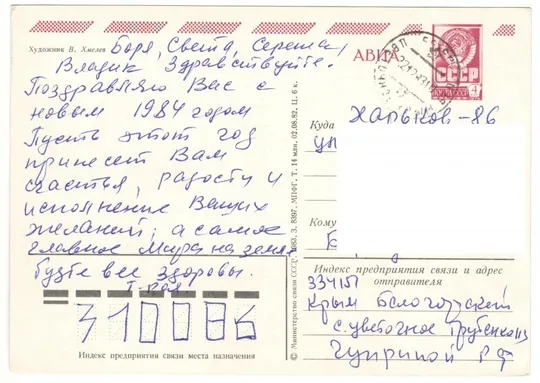 Художник В. Хмелев
Боря, Света, Сережа,
Владик Здравствуйте.
Поздравляю Вас с
новым 1984 годом
Пусть этот год
принесет Вам
счастья, радости и
исполнение Ваших
желаний, а самое
главное Мира на земле
будте все здоровы.
310086
Индекс предприятия связи места назначения
© Министерство связи СССР
МПФГ. Т. 14 млн. 02.08.82. Ц. 6 к.
АВИА
СССР
Куда
Харьков-86
ул
Кому
Б
Индекс предприятия связи и адрес
отправителя
334151
Крым Белогорский
с. Цветочное
Чуприной